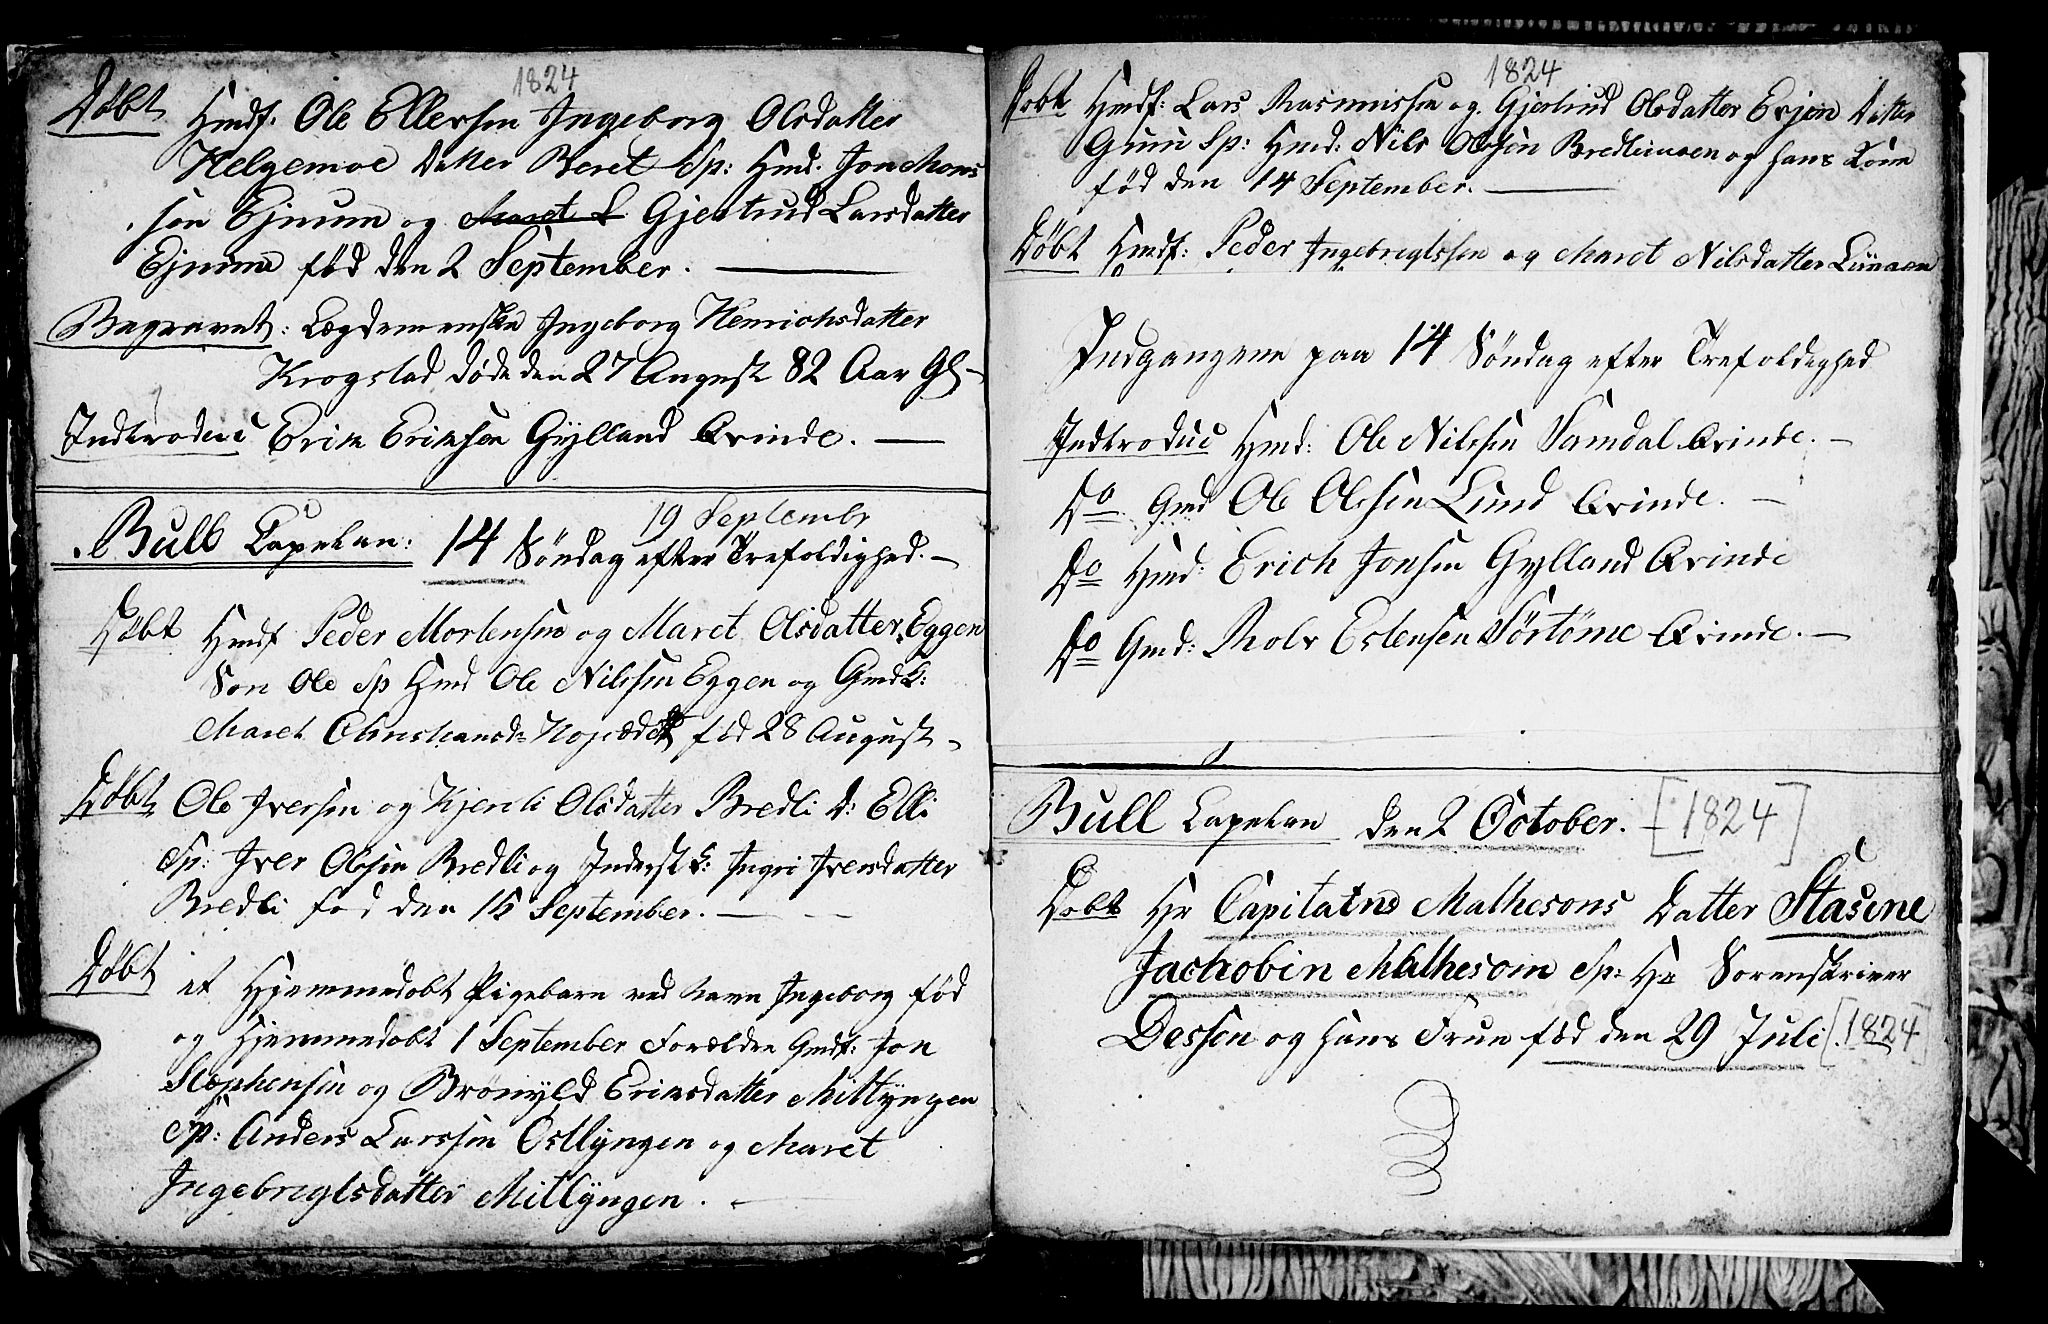 1824
Döbt Hmdf. Ole Ellersen Ingeborg Olsdatter
Helgemoe Datter Beret Sp: Hmd. Jon Mons
sen Ejnum og Maret L Gjertrud Larsdatter
Ejnum fød den 2 September.
Begravet: Lægdemenske Ingeborg Henrichsdatter
Krogstad døde den 27 August 82 Aar Gl
Indtroduc Erik Eriksen Gylland Qvinde.
19 Septembr
Bull Capelan: 14 Söndag efter Trefoldighed.
Döbt Hmdf Peder Mortensen og Maret Olsdatter Eggen
Son Ole Sp Hmd Ole Nilssen Eggen og Gmdk:
Maret Christiansd: fød 28 August
Döbt Ole Iversen og Kjersti Olsdatter Bredli D: Elli
Sp: Iver Olssen Bredli og Inderst K: Ingri Iversdatter
Bredli fød den 15 September.
Döbt et Hjemmedöbt Pigebarn ved Navn Ingeborg fød
og Hjemmedöbt 1 September Forældre Gmdf: Jon
Stephensen og Brönyld Eriksdatter Mitlyngen
Sp: Anders Larssen Östlyngen og Maret
Ingebregtsdatter Mitlyngen.
1824
Döbt Hmdf: Lars Rasmussen og Gjertrud Olsdatter Evjen Datter
Guru Sp: Hmd: Nils Olssen og hans Kone
fød den 14 September.
Döbt Hmdf: Peder Ingebregtssen og Maret Nilsdatter
Indgangene paa 14 Söndag efter Trefoldighed
Indtroduc Hmd: Ole Nilssen Samdal Qvinde.
Do Gmd Ole Olssen Lund Qvinde.
Do Hmd: Erich Jonsen Gylland Qvinde
Do Gmd: Rolv Estensen Sörtöme Qvinde.
Bull Capelan den 2 October. [1824]
Döbt Hr Capitaine Mathesons Datter Stasine
Jachobin Mathesom Sp: Hr Sorenskriver
Dessen og hans Frue fød den 29 Juli [1824]